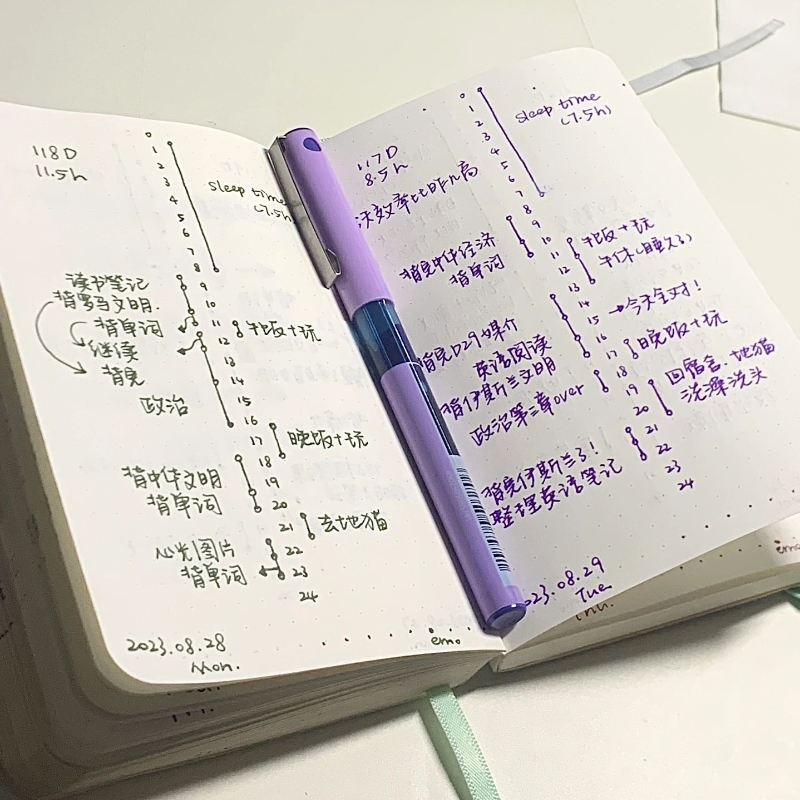 118D
11.5h
0
1
2
3
4
5
6
7
8
9
10
11
12
13
14
15
16
17
18
19
20
21
22
23
24
sleep time
(7.5h)
读书笔记
背罗马文明.
背单词
继续
背完
政治
晚饭+玩
背中华文明
背单词
去地猫
心光图片
背单词
2023.08.28
Mon.
emo
117D
8.5h
效率比昨儿高
0
1
2
3
4
5
6
7
8
9
10
11
12
13
14
15
16
17
18
19
20
21
22
23
24
sleep time
(7.5h)
背完中华经济
背单词
午饭+玩
午休(睡久了)
背完D29媒介
英语阅读
→今天全对!
背伊斯兰文明
晚饭+玩
政治第三章over
回宿舍.地猫
洗澡洗头
背完伊斯兰了!
整理英语笔记
023.08.29
Tue
emo